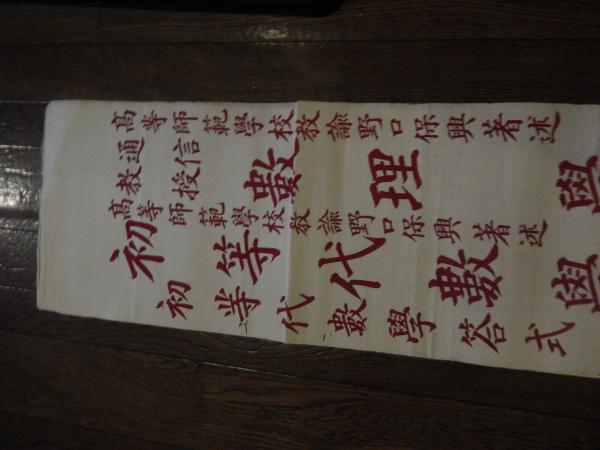 高等師範學校教諭野口保興著述
通信教授 數理學
高等師範學校教諭野口保興著述
初等代數學
初等代數學答式